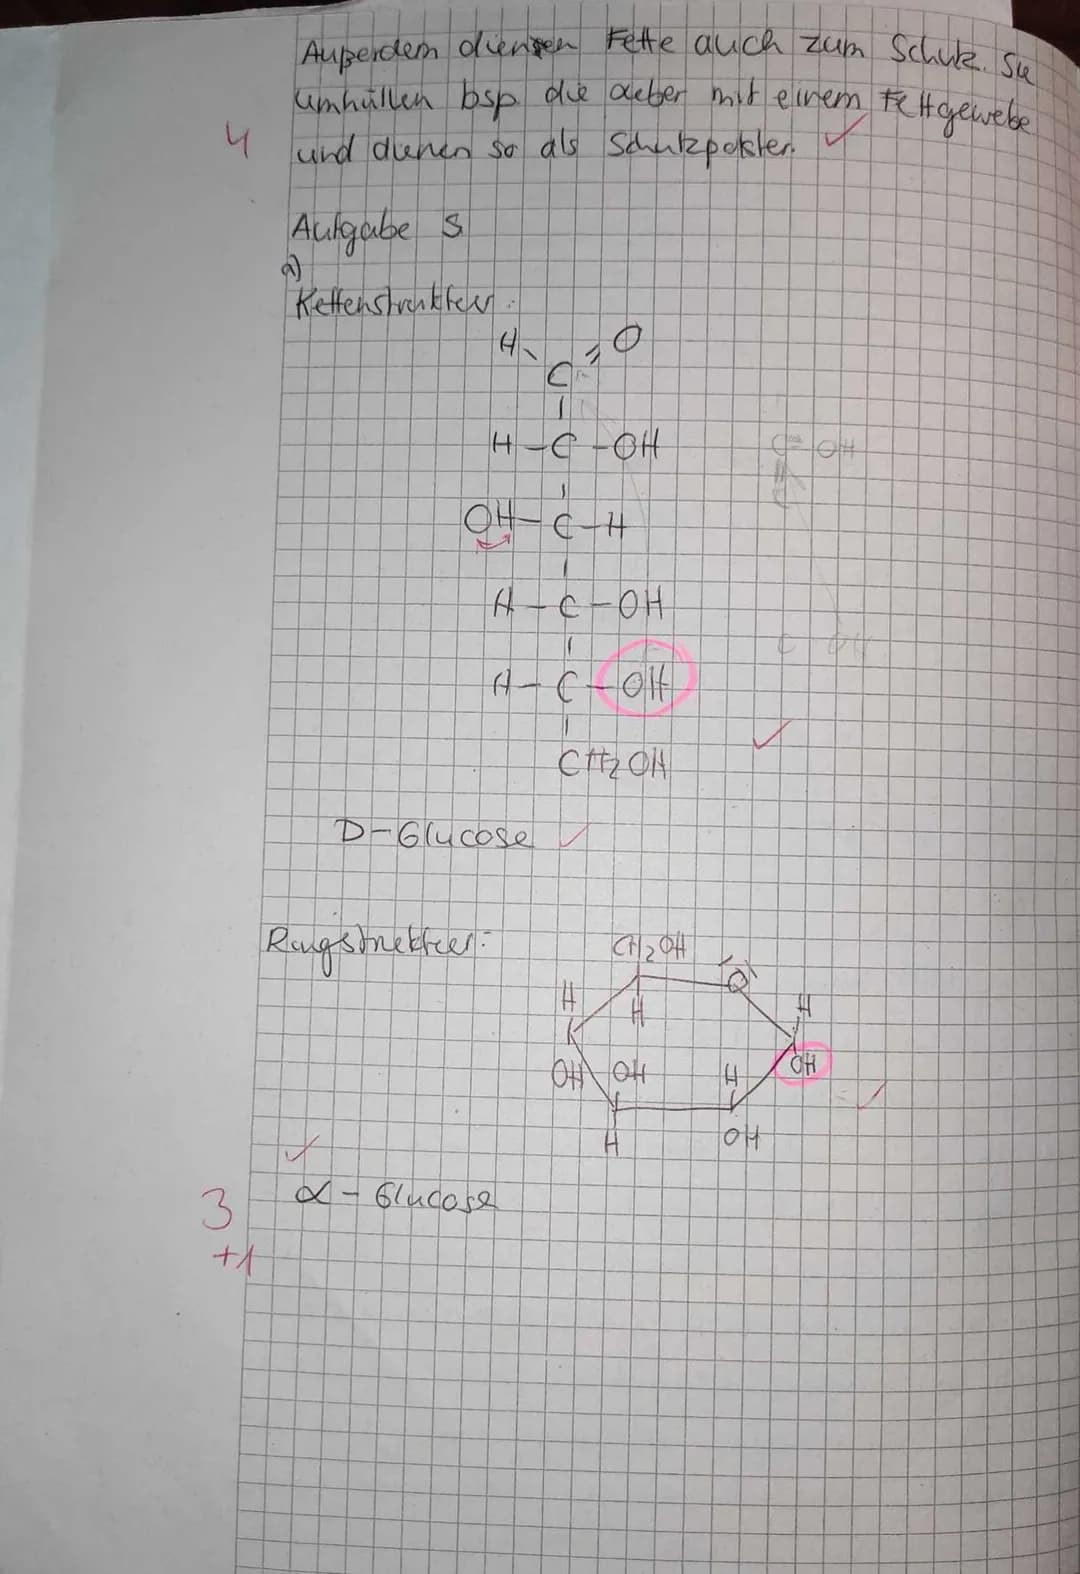 Außerdem dienen Fette auch zum Schutz. Sie
umhüllen bsp. die Leber mit einem Fettgewebe
4 und dienen so als Schutzpolster. ✓
Aufgabe 5
a)
Kettenstruktur:
H O
C
H-C-OH
OH-C-H
H-C-OH
H-C-OH
CH2OH ✓
D-Glucose ✓
Ringstruktur:
CH2OH
O
H H H
OH OH H OH
H OH ✓
✓
3 α-Glucose
+1